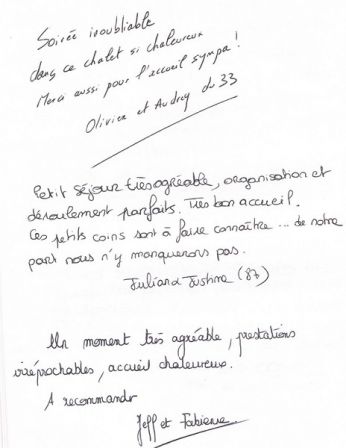 Soirée inoubliable
dans ce chalet si chaleureux
Merci aussi pour l'accueil sympa !
Olivier et Audrey du 33
Petit séjour très agréable, organisation et
déroulement parfaits. Très bon accueil.
Ces petits coins sont à faire connaître ... de notre
part nous n'y manquerons pas.
Justine (87)
Un moment très agréable, prestations
irréprochables, accueil chaleureux.
A recommander
Jeff et Fabienne